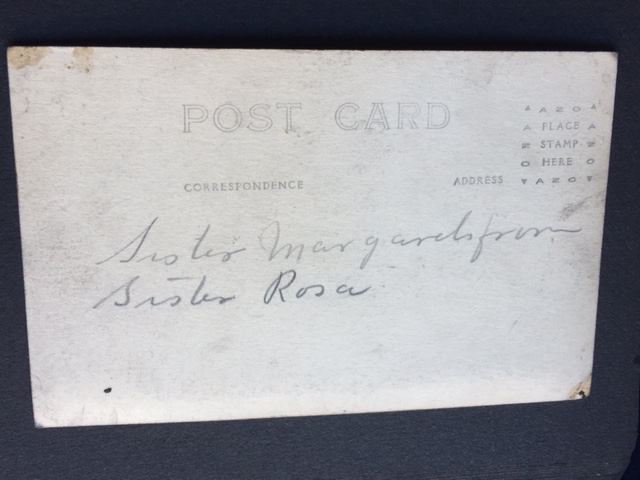 POST CARD
AZO
PLACE
STAMP
HERE
AZO
AZO
AZO
CORRESPONDENCE
ADDRESS
Sister Margarets from
Sister Rosa